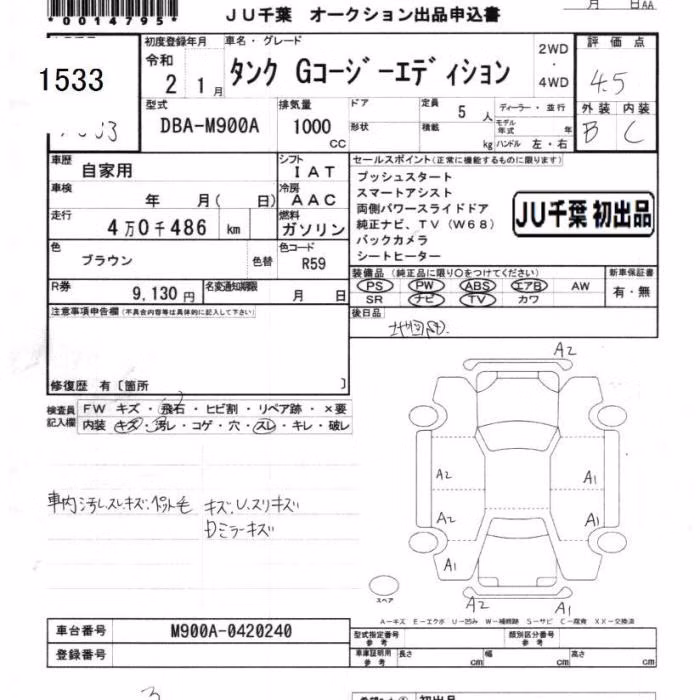 *0014795*
JU千葉 オークション出品申込書
月 日AA
1533
初度登録年月
令和
2 1月
車名・グレード
タンク Gコージーエディション
2WD
・
4WD
評価点
4.5
型式
DBA-M900A
排気量
1000
CC
ドア
形状
定員
5 人
積載
kg
ディーラー・並行
モデル年式 年
ハンドル 左・右
外装 内装
B C
車歴
自家用
シフト
IAT
車検
年 月( 日)
冷房
AAC
走行
4万0千486 km
燃料
ガソリン
色
ブラウン
色替
色コード
R59
R券
9,130円
名変通知期限
月 日
セールスポイント(正常に機能するものに限ります)
プッシュスタート
スマートアシスト
両側パワースライドドア
純正ナビ、TV(W68)
バックカメラ
シートヒーター
JU千葉 初出品
装備品 (純正品に限り○をつけてください)
PS PW ABS エアB AW
SR ナビ TV カワ
新車保証書
有・無
後日品
注意事項申告欄(不具合内容等は具体的に記入して下さい)
修復歴 有〔箇所 〕
検査員記入欄
FW キズ・飛石・ヒビ割・リペア跡・×要
内装 キズ・汚レ・コゲ・穴・スレ・キレ・破レ
車内汚レスレキズ、ペット毛
キズ、U、スリキズ
Dミラーキズ
A2
A2
A1
A2
A1
A1
A2
A1
スペア
A-キズ E-エクボ U-凹み W-補修跡 S-サビ C-腐食 XX-交換済
車台番号
M900A-0420240
登録番号
型式指定番号
参考
類別区分番号
参考
車庫証明用
参考
長さ
cm
幅
cm
高さ
cm
初出品